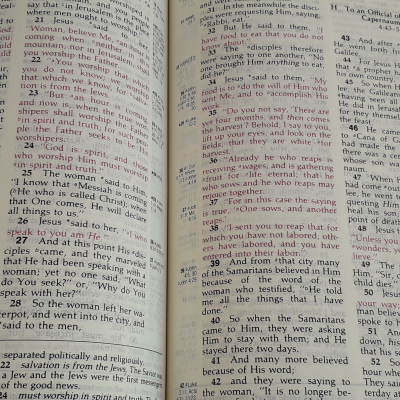 say that in Jerusalem is the place
where men ought to worship."
21 Jesus *said
"Woman, believe Me, an hour is
coming when neither in this
mountain, nor in Jerusalem,
you worship the Father.
22 "You worship that which
you do not know; we worship
that which we know, for salva-
tion is from the Jews.
23 "But an hour is coming,
and now is, when the true wor-
shipers shall worship the Father
in spirit and truth; for such peo-
ple the Father seeks to be His
worshipers.
24 "God is spirit, and those
who worship Him must worship
in spirit and truth."
25 The woman *said to Him,
"I know that Messiah is coming
(He who is called Christ); when
that One comes, He will declare
all things to us."
26 Jesus *said to her, "I who
speak to you am He."
27 And at this point His dis-
ciples came, and they marveled
that He had been speaking with a
woman; yet no one said, "What
do You seek?" or, "Why do You
speak with her?"
28 So the woman left her wa-
terpot, and went into the city, and
*said to the men,
separated politically and religiously.
22 salvation is from the Jews. The Savior was
a Jew and the Jews were the first messengers
of the good news.
24 must worship in spirit and truth.
31 In the meanwhile the disci-
ples were requesting Him, saying,
"Rabbi, eat."
32 But He said to them, "I
have food to eat that you do not
know about."
33 The disciples therefore
were saying to one another, "No
one brought Him anything to eat,
did he?"
34 Jesus *said to them, "My
food is to do the will of Him who
sent Me, and to accomplish His
work.
35 "Do you not say, 'There are
yet four months, and then comes
the harvest'? Behold, I say to you,
lift up your eyes, and look on the
fields, that they are white for
harvest.
36 "Already he who reaps is
receiving wages, and is gathering
fruit for life eternal; that he
who sows and he who reaps may
rejoice together.
37 "For in this case the saying
is true, 'One sows, and another
reaps.'
38 "I sent you to reap that for
which you have not labored; oth-
ers have labored, and you have
entered into their labor."
39 And from that city many
of the Samaritans believed in Him
because of the word of the
woman who testified, "He told
me all the things that I have
done."
40 So when the Samaritans
came to Him, they were asking
Him to stay with them; and He
stayed there two days.
41 And many more believed
because of His word;
42 and they were saying to
the woman, "It is no longer be-
H. To an Official of
Capernaum
4:43-5
43
He went forth
Galilee.
44 For Jesus
that a prophet
his own country.
45 So when He
lee, the Galileans
having seen all
He did in Jerusalem
for they themselves
the feast.
46 He came
a Cana of Ga
had made the
there was a cer
whose son was
naum.
47 When he
had come out
lee, he went to
questing Him
heal his son;
point of death
48 Jesus
"Unless you
wonders,
lieve."
49 The
Him, "Sir,
child dies."
50 Jesus
your way;
man believed
spoke to him
off.
51 And
down, his
saying that
52 So
hour when
They said